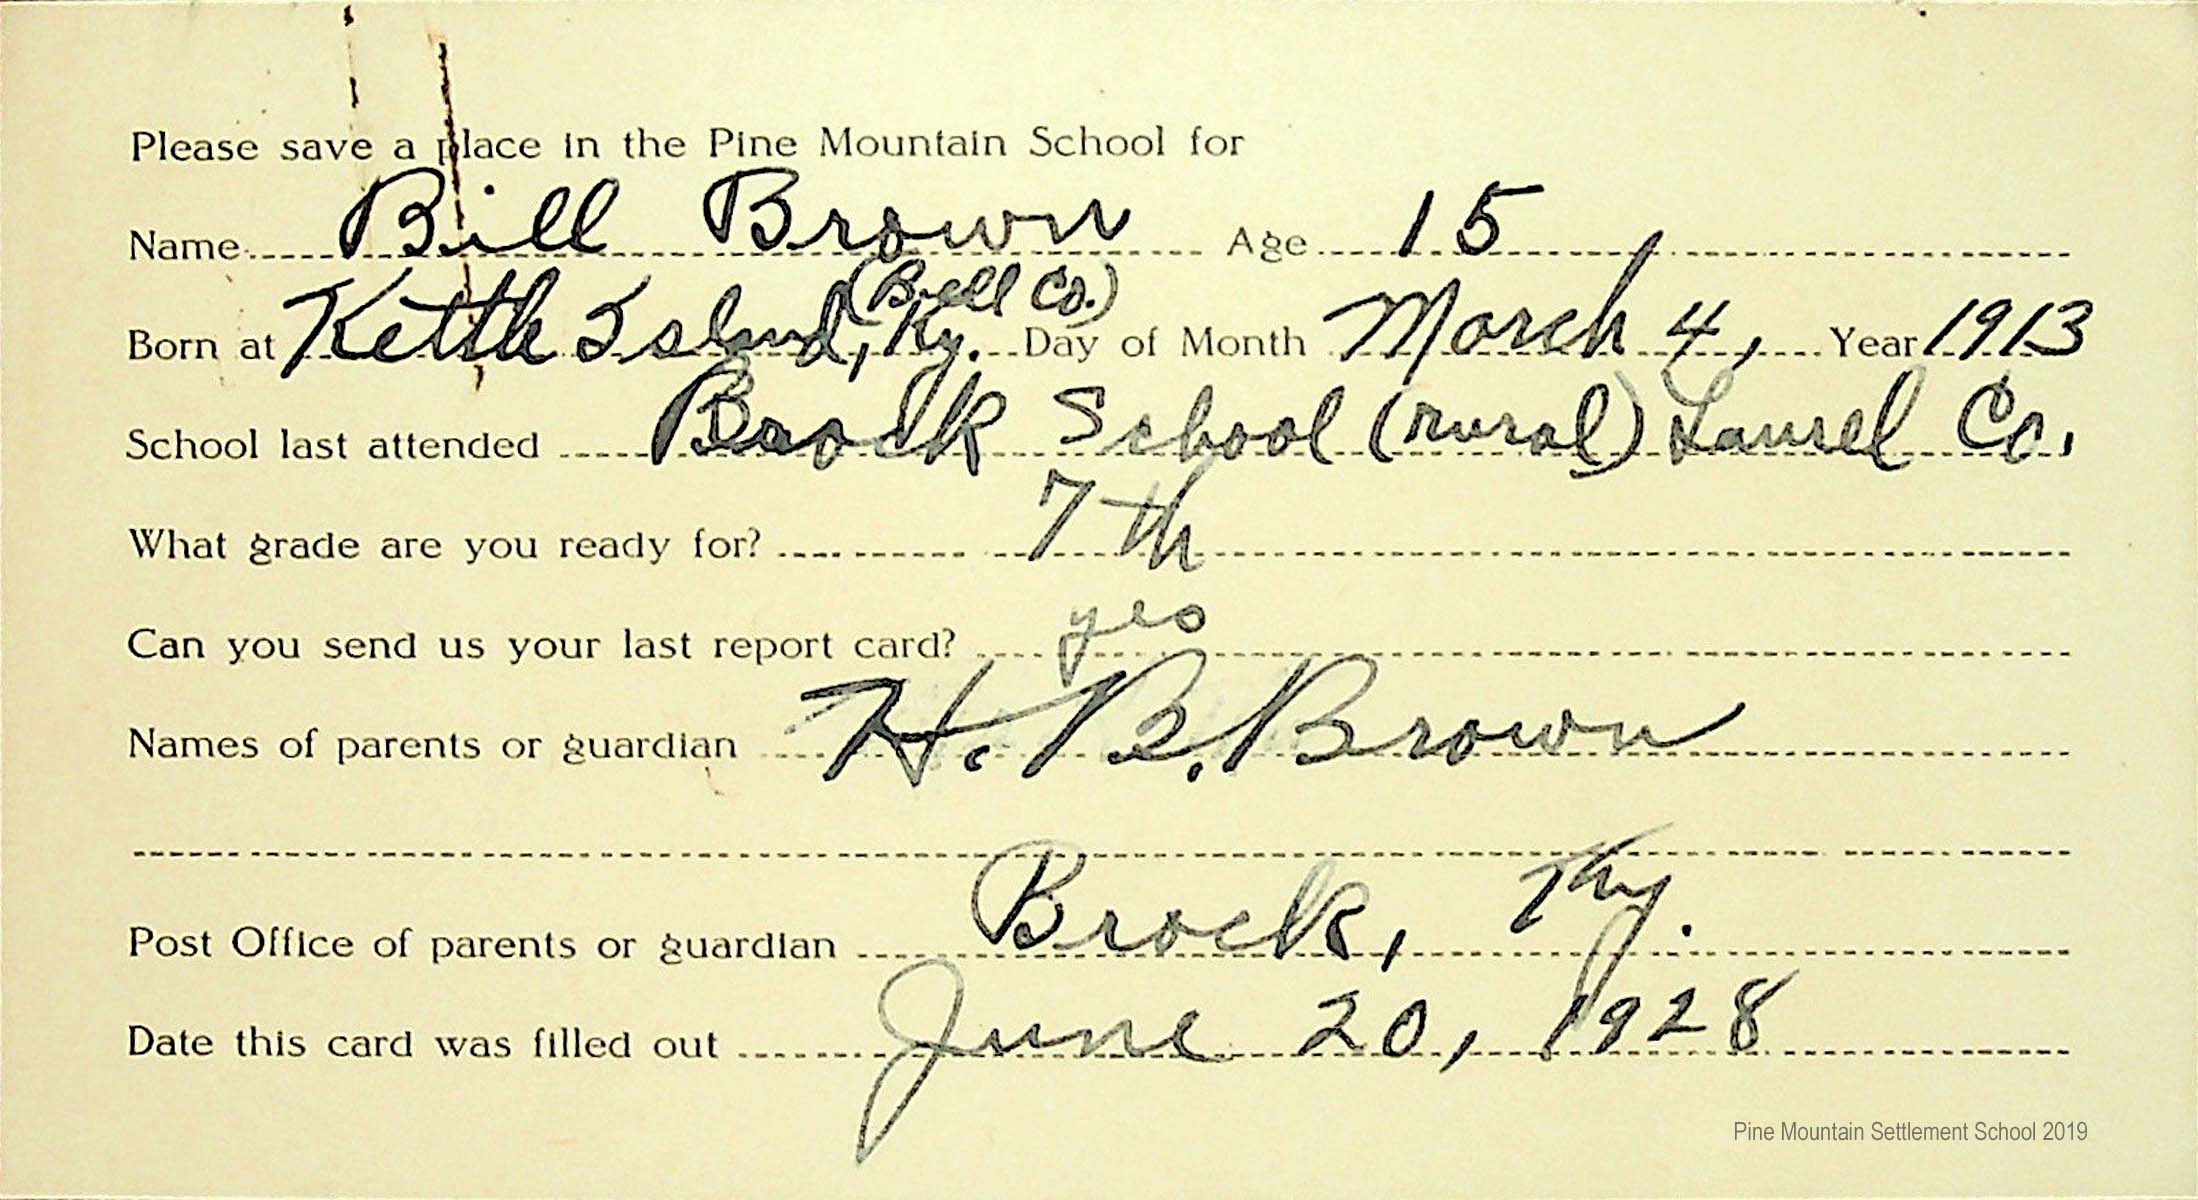 Please save a place in the Pine Mountain School for
Name Bill Brown Age 15
(Bell Co.)
Born at Kettle Island, Ky. Day of Month March 4, Year 1913
School last attended Brock School (rural) Laurel Co.
What grade are you ready for? 7th
Can you send us your last report card? yes
Names of parents or guardian H. B. Brown
Post Office of parents or guardian Brock, Ky.
Date this card was filled out June 20, 1928
Pine Mountain Settlement School 2019